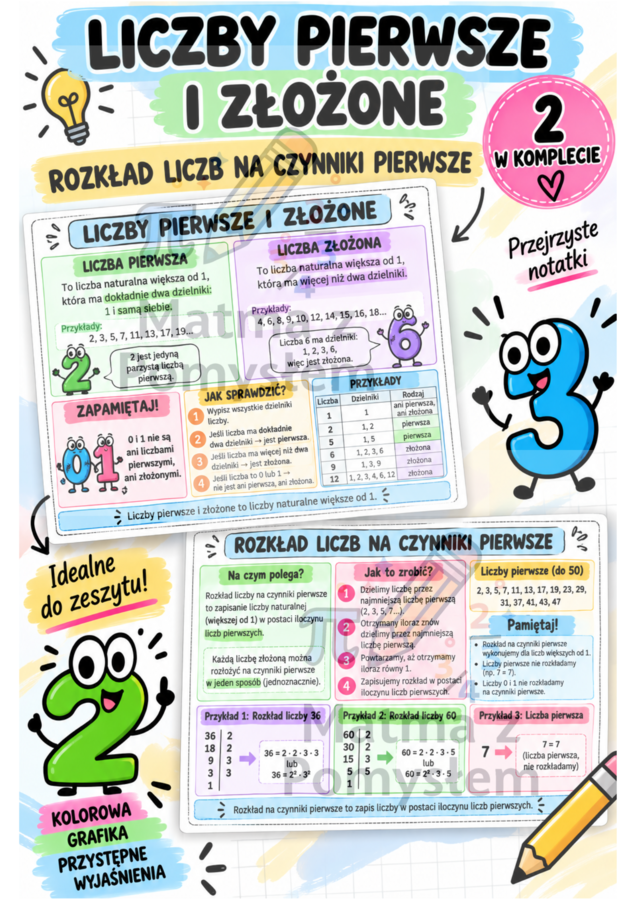 LICZBY PIERWSZE
I ZŁOŻONE
ROZKŁAD LICZB NA CZYNNIKI PIERWSZE
2
W KOMPLECIE
Przejrzyste
notatki
LICZBY PIERWSZE I ZŁOŻONE
LICZBA PIERWSZA
To liczba naturalna większa od 1,
która ma dokładnie dwa dzielniki:
1 i samą siebie.
Przykłady:
2, 3, 5, 7, 11, 13, 17, 19...
2
2 jest jedyną
parzystą liczbą
pierwszą.
LICZBA ZŁOŻONA
To liczba naturalna większa od 1,
która ma więcej niż dwa dzielniki.
Przykłady:
4, 6, 8, 9, 10, 12, 14, 15, 16, 18...
Liczba 6 ma dzielniki:
1, 2, 3, 6,
więc jest złożona.
6
ZAPAMIĘTAJ!
0 1
0 i 1 nie są
ani liczbami
pierwszymi,
ani złożonymi.
JAK SPRAWDZIĆ?
1 Wypisz wszystkie dzielniki
liczby.
2 Jeśli liczba ma dokładnie
dwa dzielniki → jest pierwsza.
3 Jeśli liczba ma więcej niż dwa
dzielniki → jest złożona.
4 Jeśli liczba to 0 lub 1 →
nie jest ani pierwsza, ani złożona.
PRZYKŁADY
Liczba Dzielniki Rodzaj
1 1 ani pierwsza,
ani złożona
2 1, 2 pierwsza
5 1, 5 pierwsza
6 1, 2, 3, 6 złożona
9 1, 3, 9 złożona
12 1, 2, 3, 4, 6, 12 złożona
Liczby pierwsze i złożone to liczby naturalne większe od 1.
3
Idealne
do zeszytu!
2
KOLOROWA
GRAFIKA
PRZYSTĘPNE
WYJAŚNIENIA
ROZKŁAD LICZB NA CZYNNIKI PIERWSZE
Na czym polega?
Rozkład liczby na czynniki pierwsze
to zapisanie liczby naturalnej
(większej od 1) w postaci iloczynu
liczb pierwszych.
Każdą liczbę złożoną można
rozłożyć na czynniki pierwsze
w jeden sposób (jednoznacznie).
Jak to zrobić?
1 Dzielimy liczbę przez
najmniejszą liczbę pierwszą
(2, 3, 5, 7...).
2 Otrzymany iloraz znów
dzielimy przez najmniejszą
liczbę pierwszą.
3 Powtarzamy, aż otrzymamy
iloraz równy 1.
4 Zapisujemy rozkład w postaci
iloczynu liczb pierwszych.
Liczby pierwsze (do 50)
2, 3, 5, 7, 11, 13, 17, 19, 23, 29,
31, 37, 41, 43, 47
Pamiętaj!
• Rozkład na czynniki pierwsze
wykonujemy dla liczb większych od 1.
• Liczby pierwsze nie rozkładamy
(np. 7 = 7).
• Liczby 0 i 1 nie rozkładamy
na czynniki pierwsze.
Przykład 1: Rozkład liczby 36
36 2
18 2
9 3
3 3
1
36 = 2 · 2 · 3 · 3
lub
36 = 2² · 3²
Przykład 2: Rozkład liczby 60
60 2
30 2
15 3
5 5
1
60 = 2 · 2 · 3 · 5
lub
60 = 2² · 3 · 5
Przykład 3: Liczba pierwsza
7
7 = 7
(liczba pierwsza,
nie rozkładamy)
Rozkład na czynniki pierwsze to zapis liczby w postaci iloczynu liczb pierwszych.
Matma z
Pomysłem
Matma z
Pomysłem